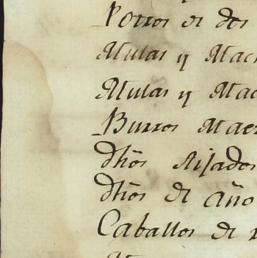 Potros de dos
Mulas y Mac
Mulas y Mac
Burros Mae
dhos
dhos de año
Caballos de